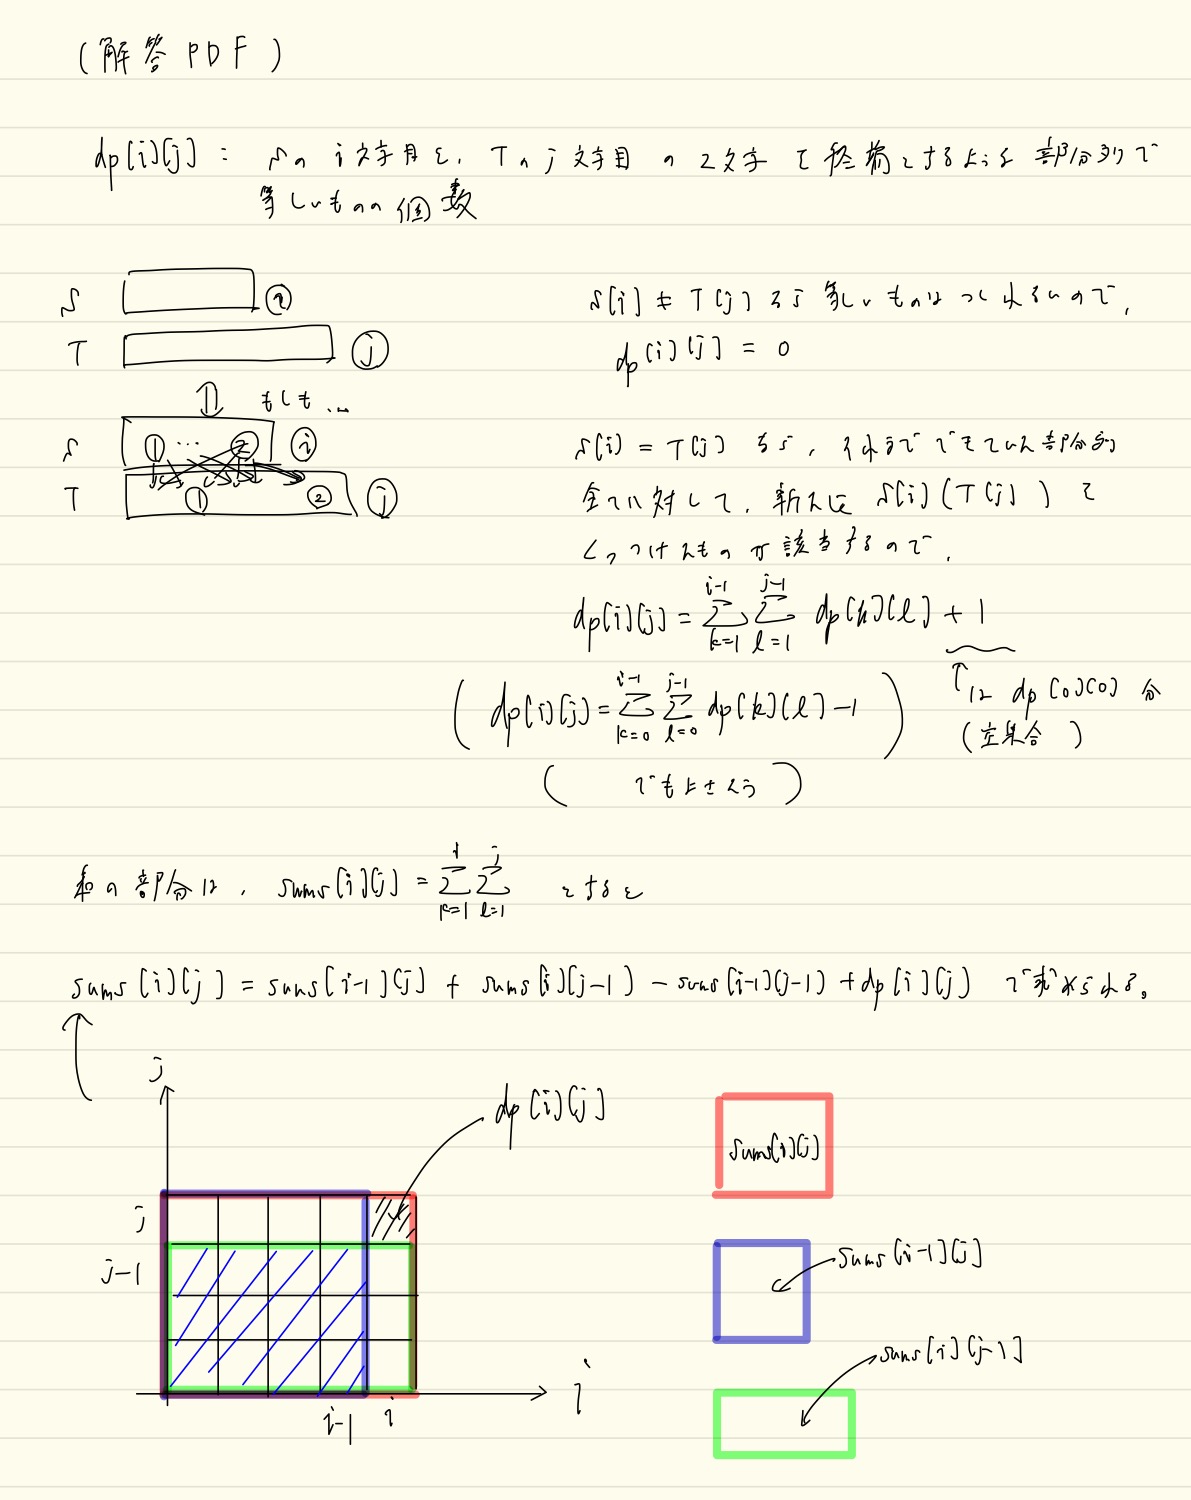 (解答PDF)
dp[i][j] : Sの i文字目と、Tの j文字目 の 2文字 を 終端とするような 部分列で
等しいものの 個数
S i
T j
もしも …
S ① … ② i
T ① ② j
S[i] ≠ T[j] なら 等しいものは つくれないので、
dp[i][j] = 0
S[i] = T[j] なら、それまで できていた部分列
全てに対して、新たに S[i] (T[j]) を
くっつけたもの が該当するので、
dp[i][j] = \sum_{k=1}^{i-1} \sum_{l=1}^{j-1} dp[k][l] + 1
↑は dp[0][0] 分
(空集合)
( dp[i][j] = \sum_{k=0}^{i-1} \sum_{l=0}^{j-1} dp[k][l] - 1 )
( でもよさそう )
和の部分は、 sums[i][j] = \sum_{k=1}^{i} \sum_{l=1}^{j} とすると
sums[i][j] = sums[i-1][j] + sums[i][j-1] - sums[i-1][j-1] + dp[i][j] で求められる。
j
dp[i][j]
sums[i][j]
j
j-1
sums[i-1][j]
sums[i][j-1]
i
i-1 i